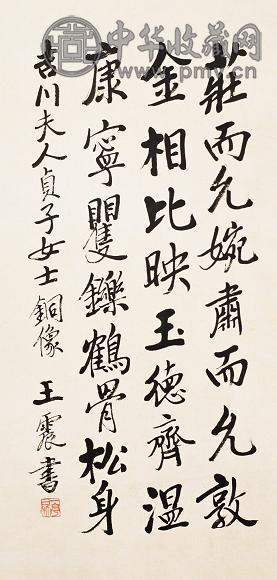 中华收藏网
www.pmv.cn
莊而允婉肅而允敦
金相比映玉德齊溫
康寧矍鑠鶴骨松身
吉川夫人貞子女士銅像
王震書